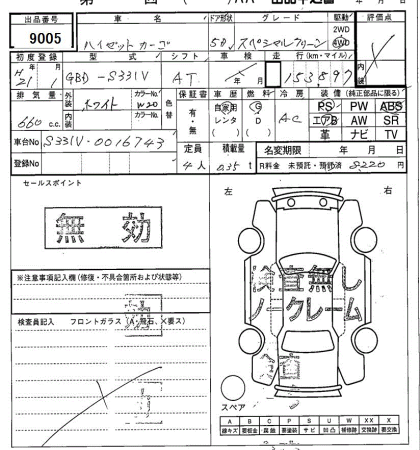 出品番号 車名 ドア形状 グレード 駆動 評価点
9005 ハイゼット カーゴ 5D スペシャルクリーン 2WD 4WD
初度登録 型式 シフト 車検 走行(km・マイル) 内装
H 21年 1月 GBD-S331V AT 年 月 153897
排気量 外装 ホワイト カラーNo. W20 色替 保証書 車歴 燃料 冷房 装備 (純正部品に限る)
660 c.c. 内装 カラーNo. 有・無 自家用 レンタ G D AC PS PW ABS
エアB AW SR
革 ナビ TV
車台No S331V-0016743 定員 積載量 名変期限 年 月 日
登録No 4人 0.35 t R料金 未預託・預託済 8220円
セールスポイント
無効
左 右
※注意事項記入欄(修復・不具合箇所および状態等)
検査無し
ノークレーム
検査員記入 フロントガラス(A・飛石、X要ス)
スペア
A B C P S U W XX X
線キズ 要板金 腐蝕 要塗装 サビ 凹凸 補修跡 交換跡 要交換